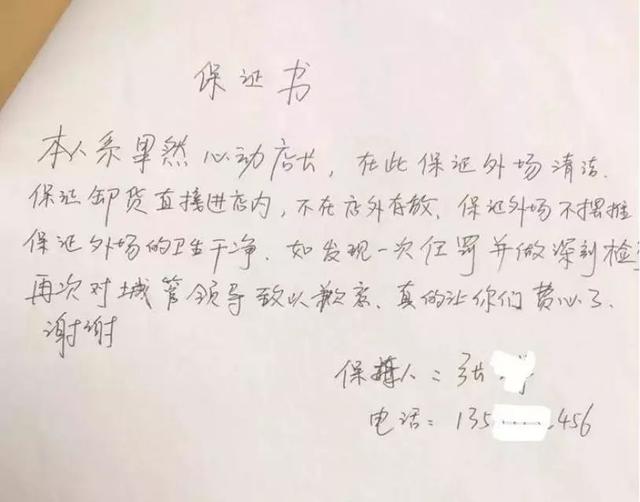 保证书
本人系果然心动店长，在此保证外场清洁.
保证卸货直接进店内，不在店外存放，保证外场不摆摊
保证外场的卫生干净.如发现一次任罚并做深刻检
再次对城管领导致以歉意、真的让你们费心了.
谢谢
保 人：张
电话：135 456